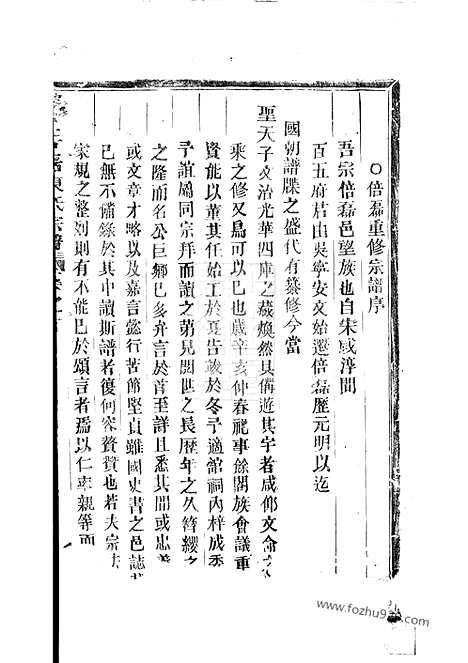 ○倍磊重修宗譜序
吾宗倍磊邑望族也自宋咸淳間
百五府君由吳寧安文始遷倍磊歷元明以迄
國朝譜牒之盛代有纂修今當
聖天子文治光華四庫之藏煥然具備遊其宇者咸仰文命
乘之修又烏可以已也歲辛亥仲春祀事餘閤族會議重
資能以董其任始工於夏告竣於冬予適館祠內梓成委
予誼屬同宗拜而讀之第見閱世之長歷年之久簪纓之
之隆而名公巨鄉已多弁言於首至詳且悉其間或忠
或文章才略以及嘉言懿行苦節堅貞雖國史書之邑誌
已無不備錄於其中讀斯譜者復何容贅贊也若夫宗
家規之整則有不能已於頌言者焉以仁率親等而
陳氏宗譜
www.fozhu920.com